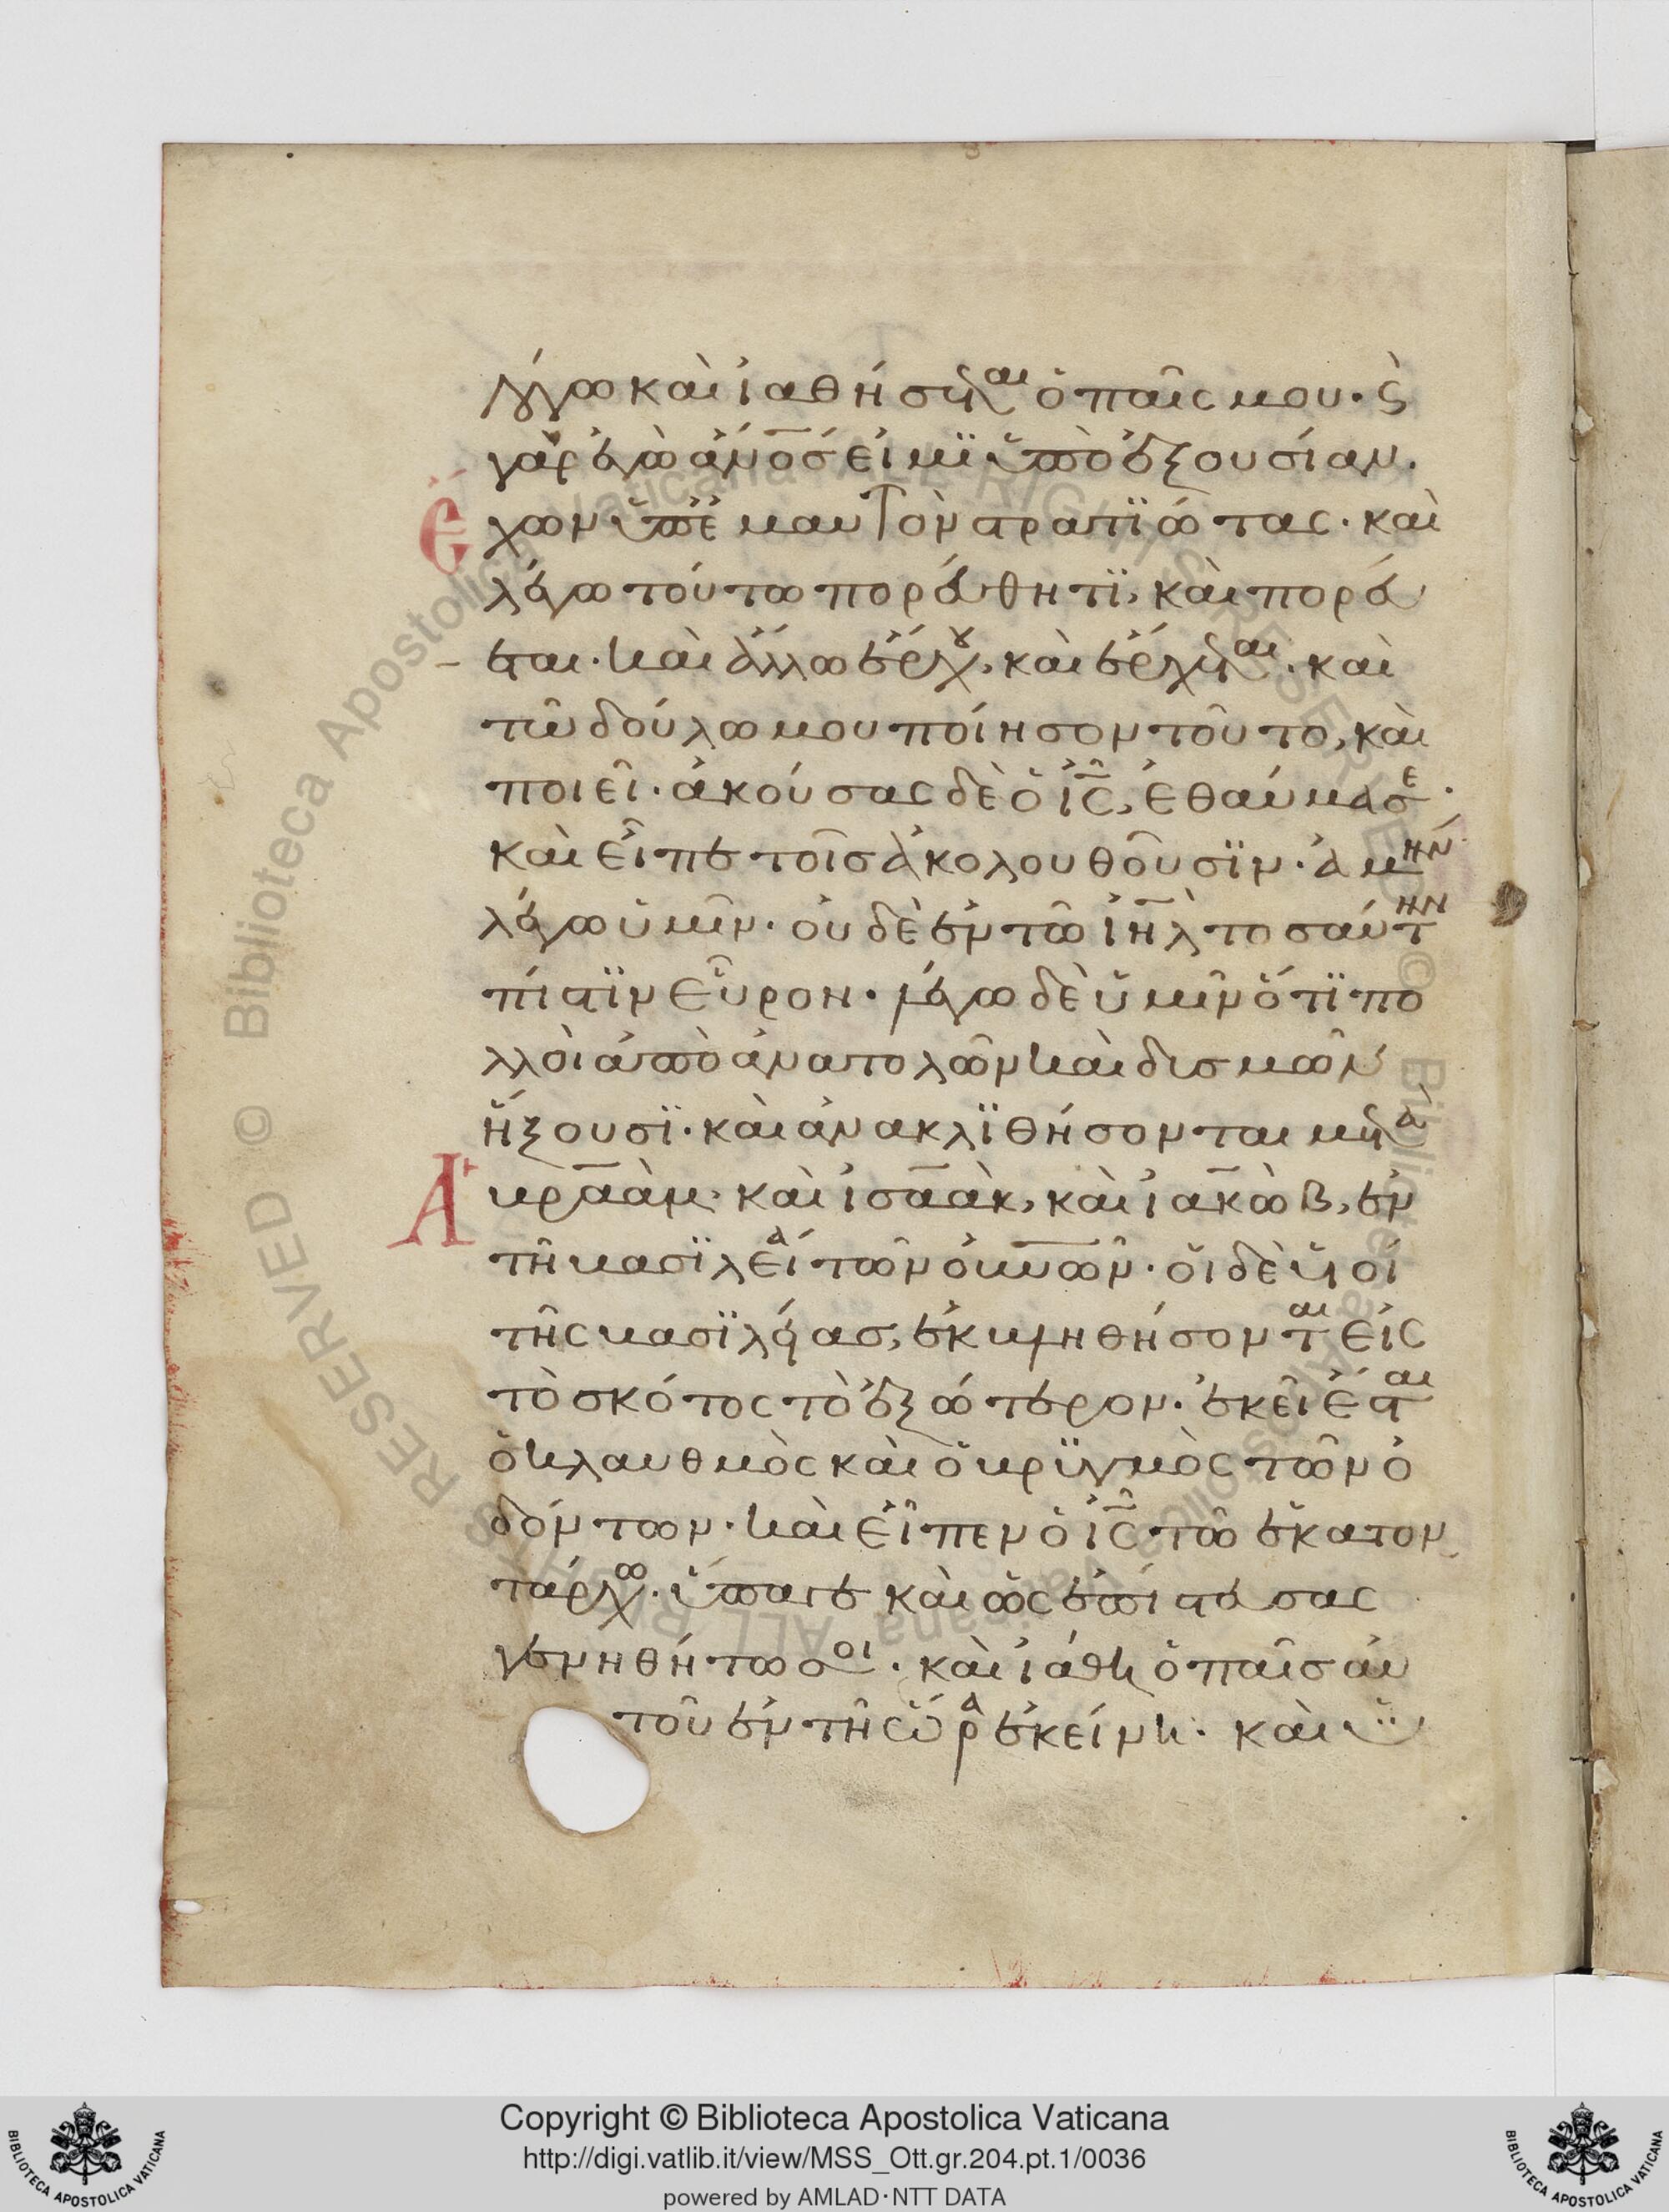 λόγω καὶ ἰαθήσεται ὁ παῖς μου· ϛ
γὰρ ἐγὼ ἄν̅ο̅σ̅ εἰμϊ ὑπὸ ἐξουσίαν.
Ἔχων ὑπ' ἐμαυτὸν στρατϊώτας· καὶ
λέγω τούτω πορεύθητϊ, καὶ πορεύ
εται· καὶ ἄλλω ἔρχου, καὶ ἔρχεται· καὶ
τῶ δούλω μου ποίησον τοῦτο, καὶ
ποιεῖ· ἀκούσας δὲ ὁ ἰ̅ς̅, ἐθαύμασε·
καὶ εἶπε τοῖσ ἀκολουθοῦσϊν· ἀμὴν
λέγω ὑμῖν· οὐδὲ ἐν τῶ ἰ̅η̅λ̅ τοσαύτην
πίστϊν εὗρον· λέγω δὲ ὑμῖν ὅτϊ πο
λλοὶ ἀπὸ ἀνατολῶν καὶ δισμῶν
ἥξουσϊ· καὶ ἀνακλϊθήσονται μετὰ
Ἀβραὰμ· καὶ ἰσαὰκ, καὶ ἰακὼβ, ἐν
τῆ βασϊλεία τῶν ὀυ̅ν̅ῶν· οἱ δὲ υἱοὶ
τῆς βασϊλείασ, ἐκβληθήσονται εἰς
τὸ σκότος τὸ ἐξώτερον· ἐκεῖ ἔσται
ὁ κλαυθμὸς καὶ ὁ βρϋγμὸς τῶν ὀ
δόντων· καὶ εἶπεν ὁ ἰ̅ς̅ τῶ ἑκατον
τάρχω· ὕπαγε καὶ ὡς ἐπίστευσας
γενηθήτω σοι· καὶ ἰάθη ὁ παῖσ αὐ
τοῦ ἐν τῆ ὥρα ἐκείνη· καὶ ὑ
Copyright © Biblioteca Apostolica Vaticana
http://digi.vatlib.it/view/MSS_Ott.gr.204.pt.1/0036
powered by AMLAD·NTT DATA
BIBLIOTECA APOSTOLICA VATICANA
BIBLIOTECA APOSTOLICA VATICANA